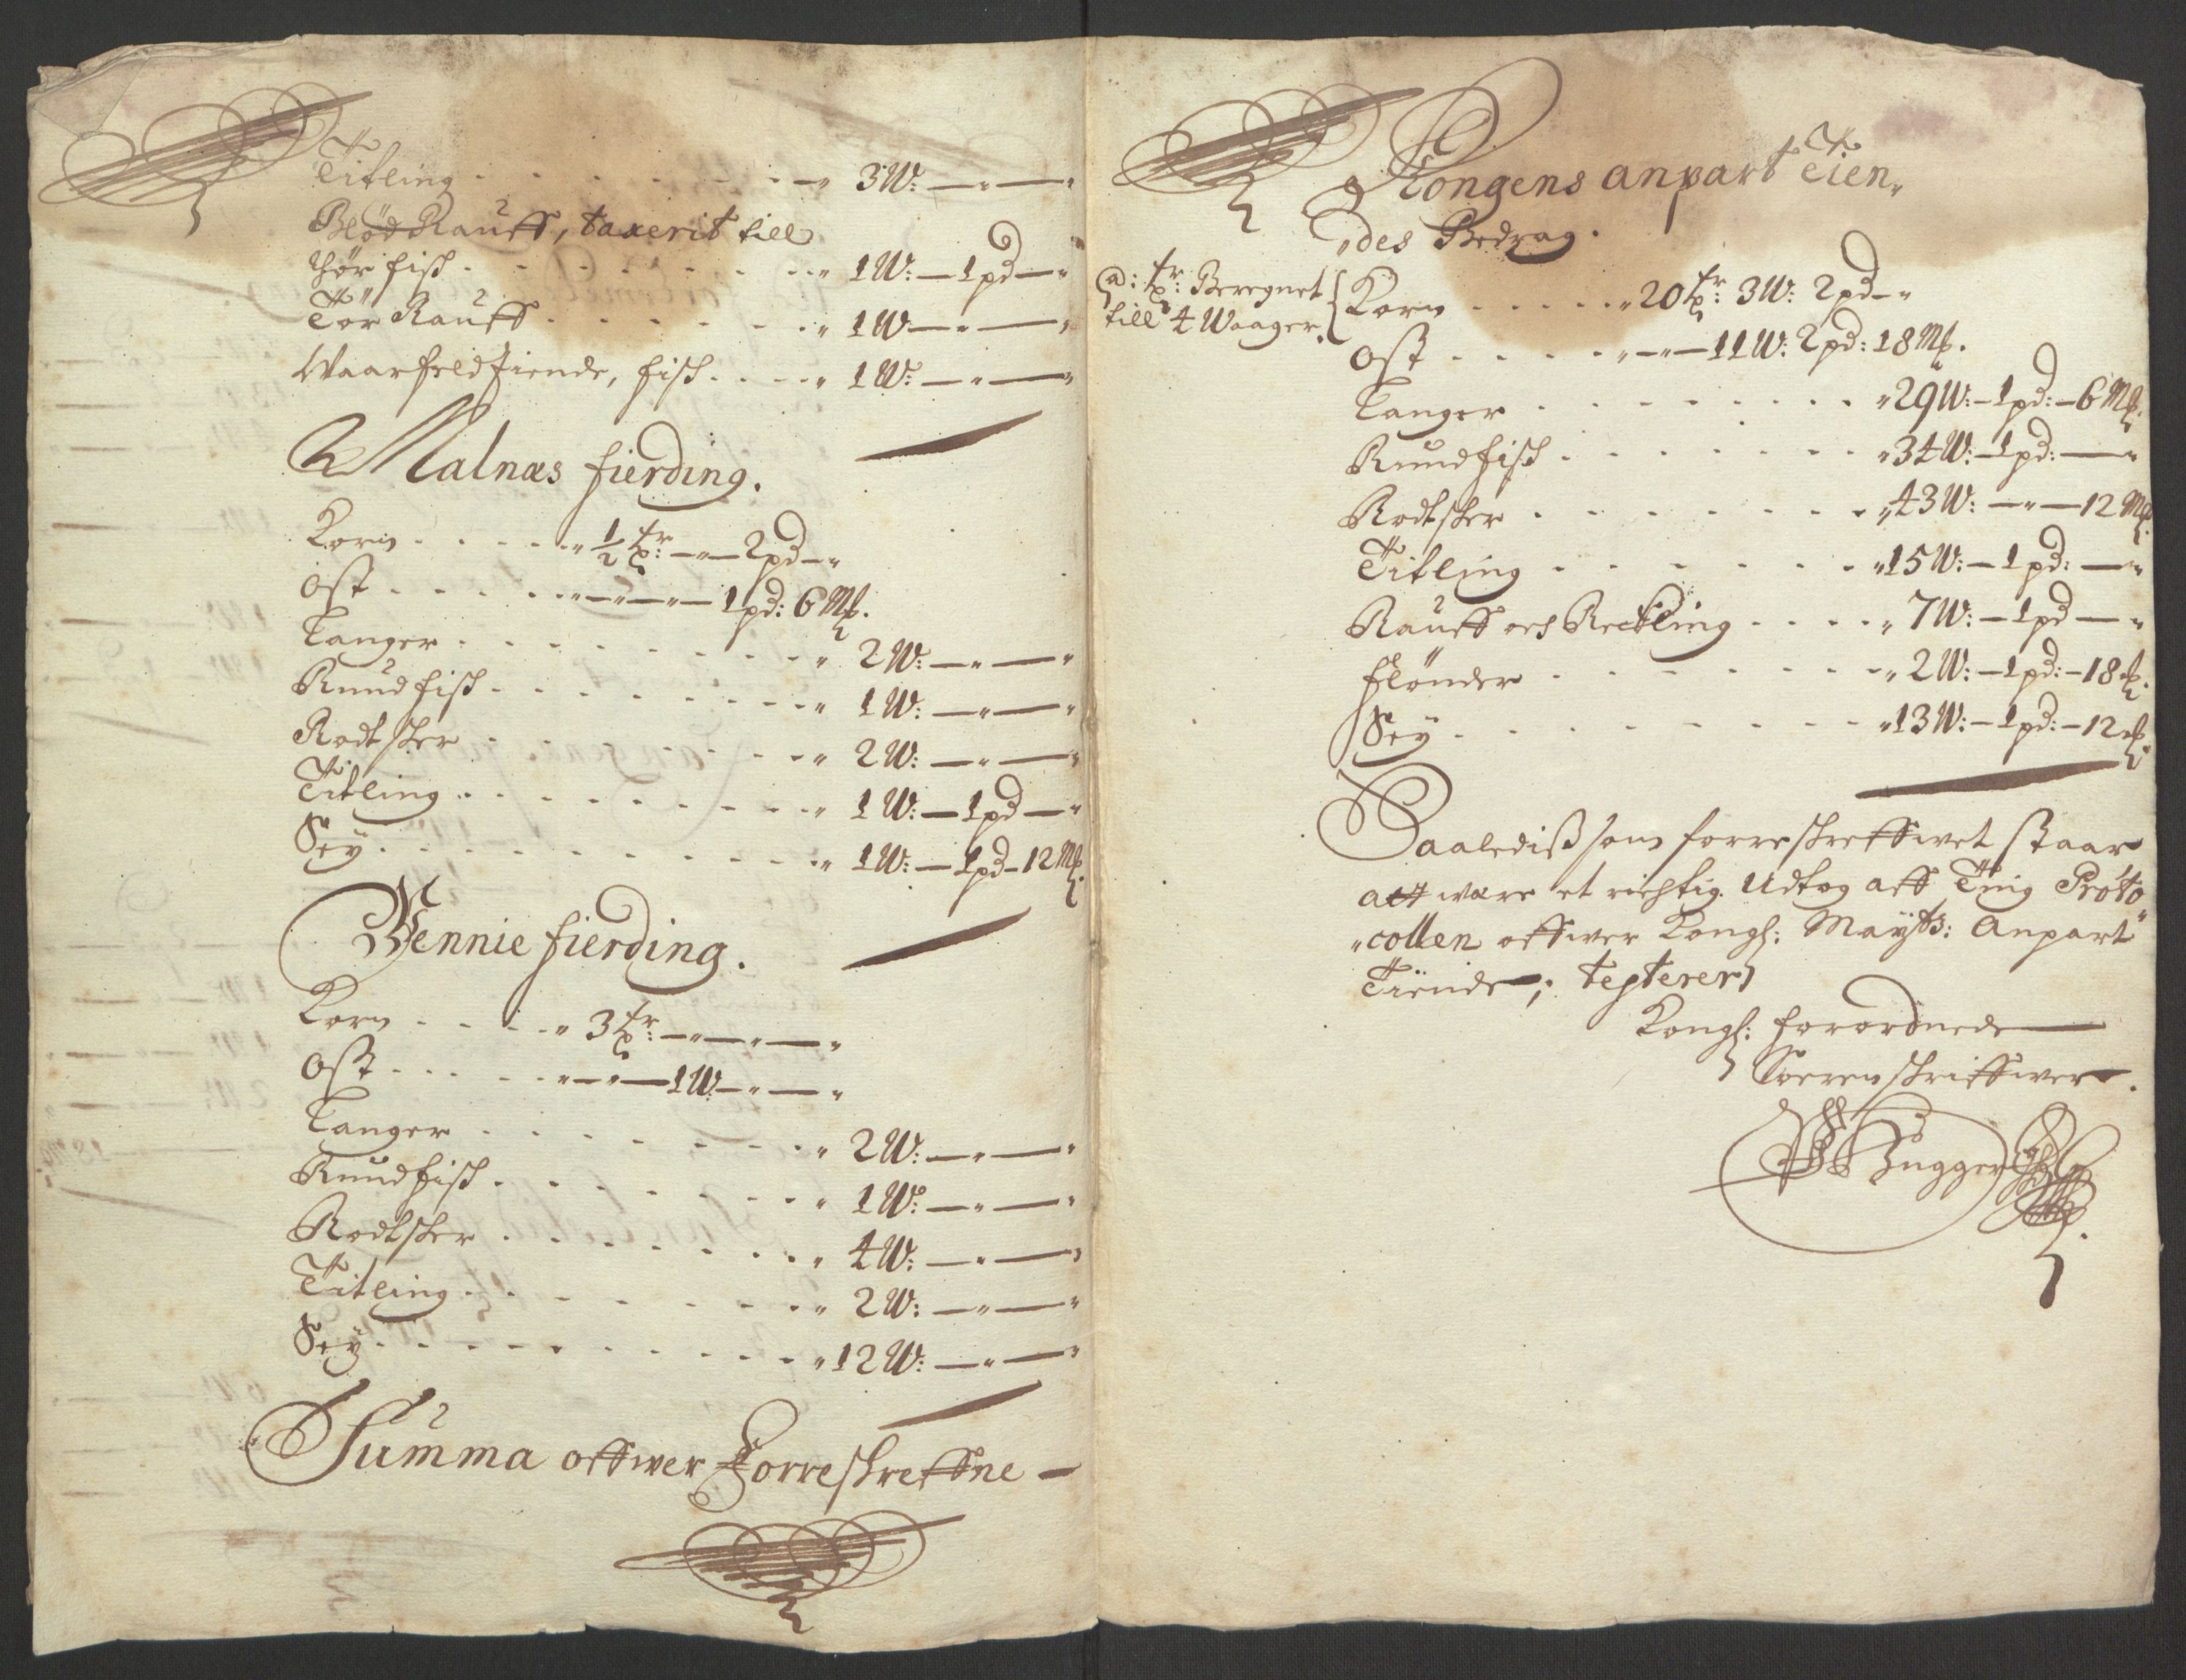 Titling - - - - - - - - " 3 W: — " — "
Blöd Rauff, taxerit till
thör fisk - - - - - - - - " 1 W: — 1 pd — "
Tör Rauff - - - - - - - " 1 W — " — "
Waarfeldtiende, fisk - - - - " 1 W: — " — "
Malnæs fierding.
Korn - - - - - " ½ tr: — " — 2 pd — "
Ost - - - - - " — " — " — 1 pd: 6 Mk.
Langer - - - - - - - - " 2 W: — " — "
Rund fisk - - - - - - - " 1 W: — " — "
Rodtsker - - - - - - - " 2 W: — " — "
Titling - - - - - - - - " 1 W: — 1 pd — "
Sey - - - - - - - - - " 1 W: — 1 pd — 12 Mk.
Wennie fierding.
Korn - - - - " 3 tr: — " — " — "
Ost - - - - - " — " — 1 W — " — "
Langer - - - - - - - - " 2 W: — " — "
Rundfisk - - - - - - - " 1 W: — " — "
Rodtsker - - - - - - - " 4 W: — " — "
Titling - - - - - - - " 2 W: — " — "
Sey - - - - - - - - - " 12 W: — " — "
Summa offwer Forreskreffne —
Kongens anpart Tien"
"des Bedrag.
@: tr: Beregnet
till 4 Waager.
Korn - - - - - " 20 tr: 3 W: 2 pd — "
Ost - - - - - " — " — 11 W: 2 pd: 18 Mk.
Langer - - - - - - - - " 29 W: — 1 pd: — 6 Mk.
Rundfisk - - - - - - - " 34 W: — 1 pd: — "
Rodtsker - - - - - - - " 43 W: — " — 12 Mk.
Titling - - - - - - - " 15 W: — 1 pd: — "
Rauff och Reckling - - - - " 7 W: — 1 pd — "
flönder - - - - - - - " 2 W: — 1 pd: — 18 Mk.
Sey - - - - - - - - " 13 W: — 1 pd: — 12 Mk.
Saaledis som forreskreffwet staar
att være et richtig Udtog aff Ting Proto
"collen offwer Kongl: Mayts: Anpart
Tiende; testerer
Kongl: forordnede —
Sorenskriffwer.
Bugger